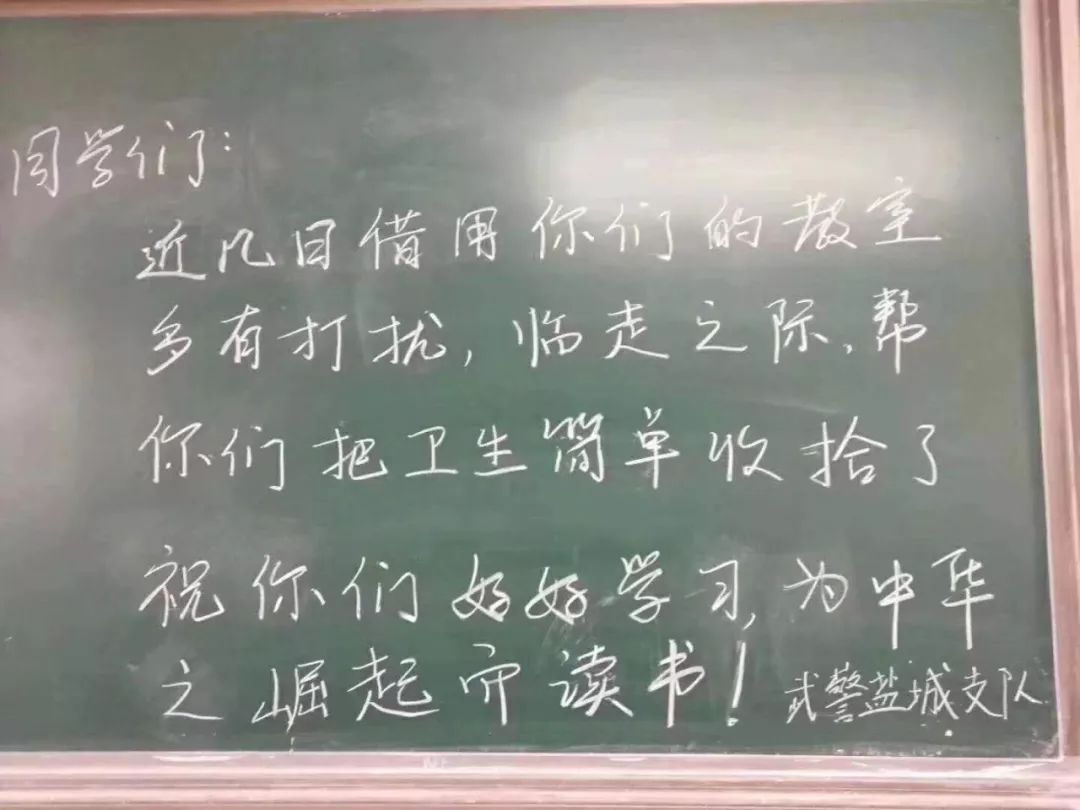 同学们:
近几日借用你们的教室
多有打扰,临走之际,帮
你们把卫生简单收拾了
祝你们好好学习,为中华
之崛起而读书!
武警盐城支队